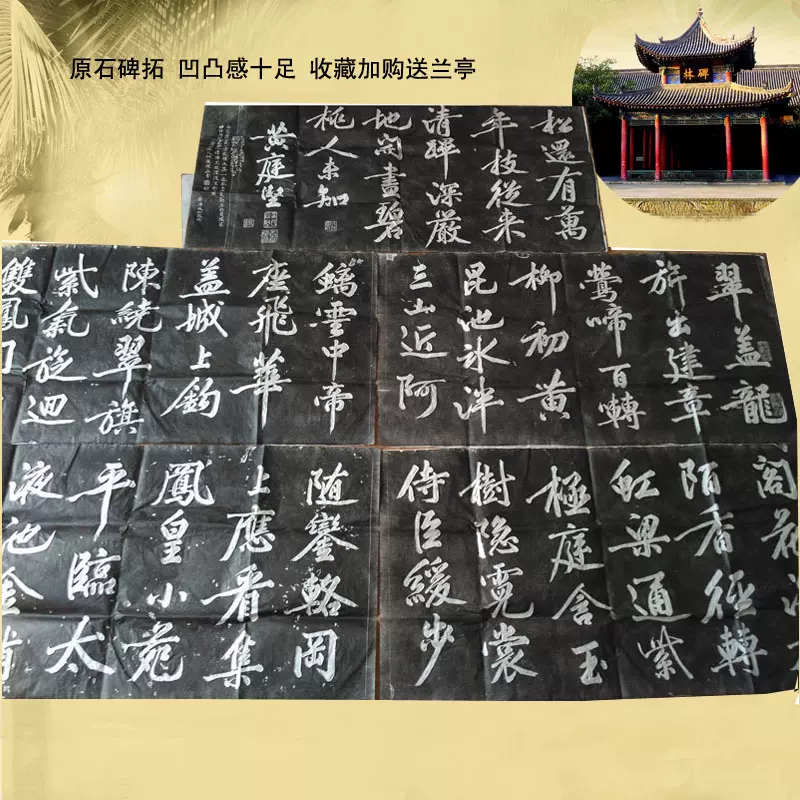 原石碑拓 凹凸感十足 收藏加购送兰亭
碑林
松還有萬
年枝從来
清蹕深嚴
地閑畫碧
桃人未知
黄庭堅
翠盖龍
旂出建章
鶯啼百轉
柳初黄
昆池冰泮
三山近阿
雲中帝
座飛華
盖城上鈎
陳繞翠旗
紫氣旋迴
雙鳳
閣花
陌香徑轉
虹梁通紫
極庭含玉
樹隐霓裳
侍臣緩步
随鑾輅岡
上應看集
鳳皇小苑
平臨太
液池金